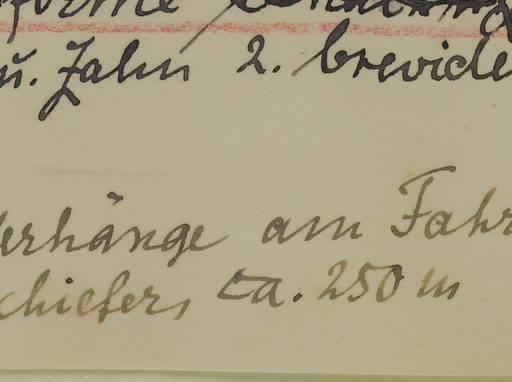 forme
u. Zahn 2. brevide
erhänge am Fahr
chiefer, ca. 250 m